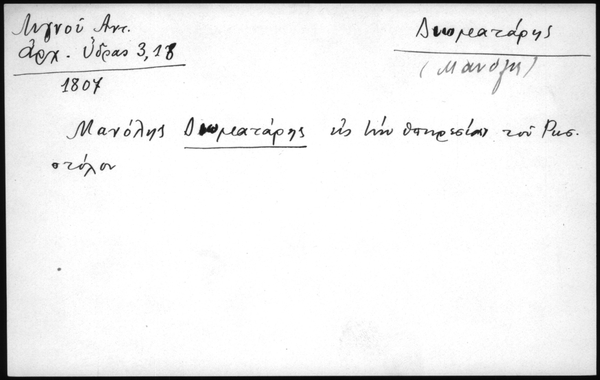 Λιγνού Αντ.
αρχ. Ύδρας 3, 18
1807
Διωματάρης
(Μανόλης)
Μανόλης Διωματάρης εις την υπηρεσίαν του Ρωσ.
στόλου